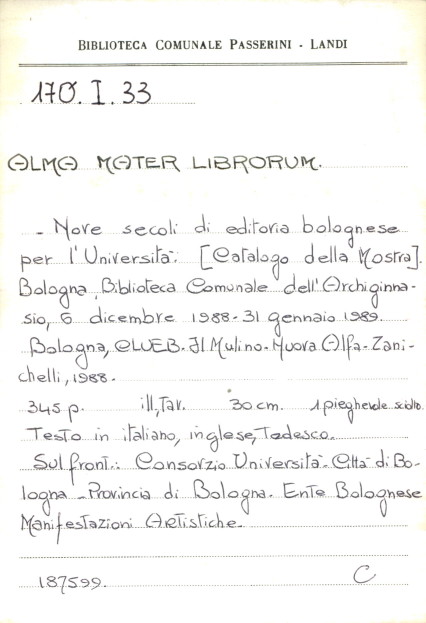 BIBLIOTECA COMUNALE PASSERINI - LANDI
170. I. 33
ALMA MATER LIBRORUM.
- Nove secoli di editoria bolognese
per l'Università: [Catalogo della Mostra].
Bologna, Biblioteca Comunale dell'Archiginna-
sio, 6 dicembre 1988-31 gennaio 1989.
Bologna, CLUEB-Il Mulino-Nuova Alfa-Zani-
chelli, 1988.
345 p. ill., Tav. 30 cm. 1 pieghevole sciolto.
Testo in italiano, inglese, Tedesco.
Sul front.: Consorzio Università-Città di Bo-
logna - Provincia di Bologna. Ente Bolognese
Manifestazioni Artistiche.
187599. C